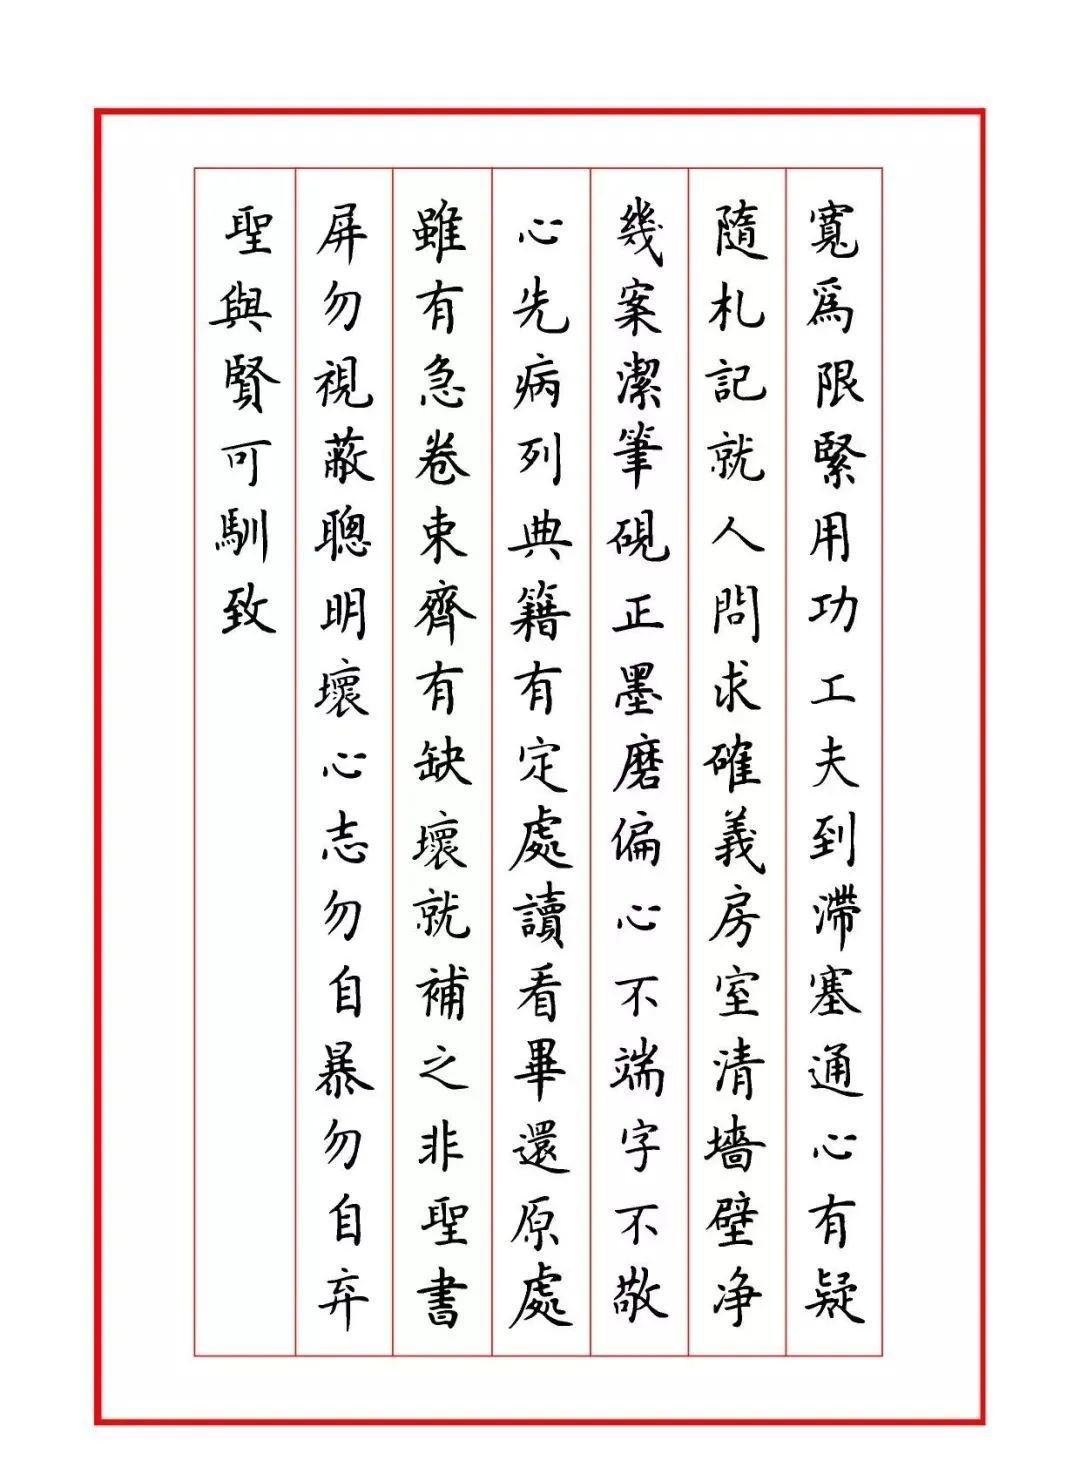 寬爲限緊用功工夫到滯塞通心有疑
隨札記就人問求確義房室清墻壁净
幾案潔筆硯正墨磨偏心不端字不敬
心先病列典籍有定處讀看畢還原處
雖有急卷束齊有缺壞就補之非聖書
屏勿視蔽聰明壞心志勿自暴勿自弃
聖與賢可馴致